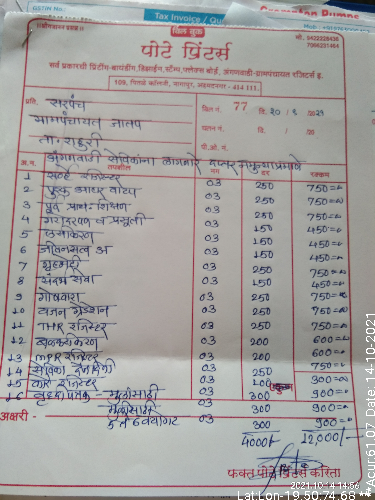 Tax Invoice /
बिल बुक
मो. 9422228436
7066231464
पोटे प्रिंटर्स
सर्व प्रकारची प्रिंटींग-बायंडींग, डिझाईन, स्टॅम्प, फ्लेक्स बोर्ड, अंगणवाडी-ग्रामपंचायत रजिस्टर्स इ.
109, निलक्रे कॉलनी, नागापूर, अहमदनगर - 414 111.
प्रति, सरपंच बिल नं. 77 दि. 20/ /20
ग्रामपंचायत जातप चलन नं. दि. / /20
ता. राहुरी पी.ओ. नं.
अंगणवाडी सेविकांना लागणारे दप्तर
अ.न. नग दर रक्कम
1 सर्व्हे रजिस्टर 03 250 750=00
2 पुरक आहार वाटप 03 250 750=00
3 पुर्व प्राथ. शिक्षण 03 250 750=00
4 गरोदरपण व प्रसुती 03 150 450=00
5 लसीकरण 03 150 450=00
6 जीवनसत्व अ 03 150 450=00
7 गृहभेटी 03 250 750=00
8 संदर्भ सेवा 03 150 450=00
9 गोषवारा 03 250 750=00
10 वजन 03 250 750=00
11 THR रजिस्टर 03 250 750=00
12 03 200 600=00
13 MPR रजिस्टर 03 200 600=00
14 सेविका दैनंदिनी 03 250 750=00
15 रजिस्टर 03 100 300=00
16 वृद्धीपत्रक - मुलांसाठी 03 300 900=00
मुलींसाठी 03 300 900=00
अक्षरी - 5 ते 6 वयोगट 03 300 900=00
4000/- 12,000/-
फक्त पोटे प्रिंटर्स करिता
2021-10-14 14:56
Lat:Lon-19.50:74.68 **Acur:61.07 Date:14-10-2021